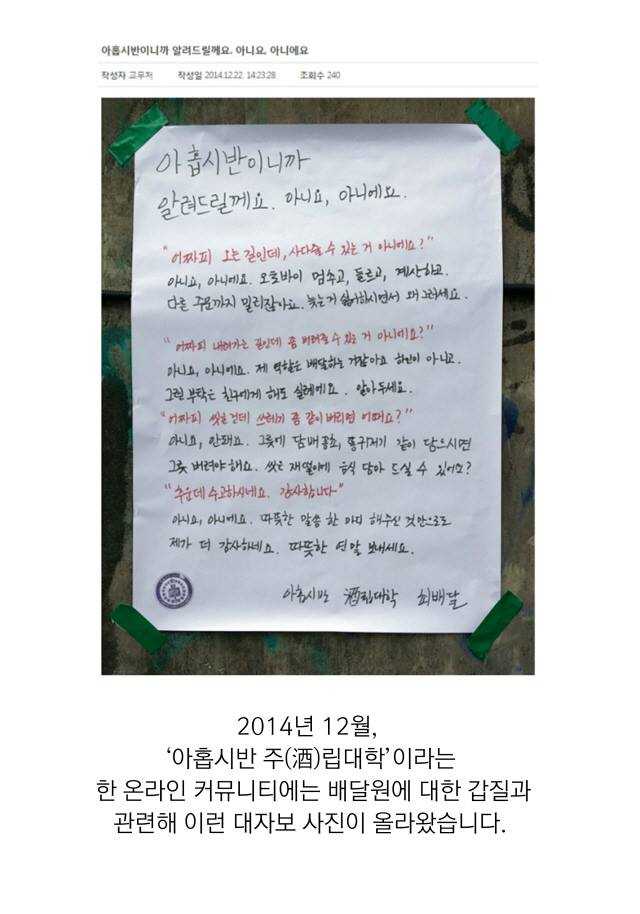 아홉시반이니까 알려드릴께요. 아니요, 아니에요
작성자 교무처 작성일 2014.12.22 14:23:28 조회수 240
아홉시반이니까
알려드릴께요. 아니요, 아니에요.
"어짜피 오는 길인데, 사다줄 수 있는 거 아니에요?"
아니요, 아니에요. 오토바이 멈추고, 들르고, 계산하고.
다른 주문까지 밀리잖아요. 늦는거 싫어하시면서 왜 그러세요.
"어짜피 내려가는 길인데 좀 버려줄 수 있는 거 아니에요?"
아니요, 아니에요. 제 역할은 배달하는 거잖아요 하인이 아니고.
그런 부탁은 친구에게 해도 실례에요. 알아두세요.
"어짜피 씻을 건데 쓰레기 좀 같이 버리면 어때요?"
아니요, 안돼요. 그릇에 담배꽁초, 똥귀저기 같이 담으시면
그릇 버려야 해요. 씻은 재떨이에 음식 담아 드실 수 있어요?
"추운데 수고하시네요. 감사합니다"
아니요, 아니에요. 따뜻한 말씀 한 마디 해주신 것만으로도
제가 더 감사하네요. 따뜻한 연말 보내세요.
아홉시반 酒립대학 최배달
2014년 12월,
‘아홉시반 주(酒)립대학’이라는
한 온라인 커뮤니티에는 배달원에 대한 갑질과
관련해 이런 대자보 사진이 올라왔습니다.